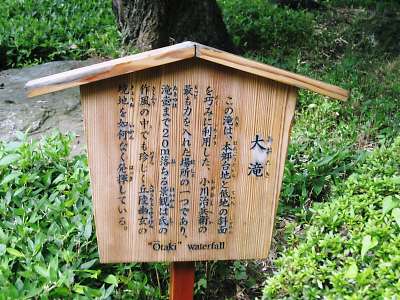 大滝
この滝は、本郷台地と低地の斜面
を巧みに利用した、小川治兵衛の
最も力を入れた場所の一つであり、
滝壺まで20m落ちる景観は氏の
作風の中でも珍しく、丘陵幽玄の
境地を如何なく発揮している。
"Ōtaki" waterfall